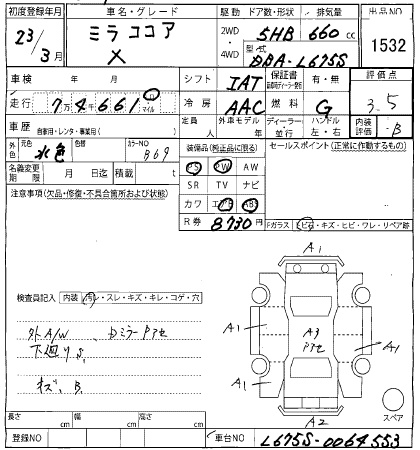 初度登録年月 車名・グレード 駆動 ドア数・形状 排気量 出品NO
23/3月 ミラココア X 2WD・4WD 5HB 660cc 1532
型式 DBA-L675S
車検 年 月 シフト IAT 保証書 有・無 評価点
走行 7万4千661 km マイル 冷房 AAC 燃料 G 3.5
車歴 自家用・レンタ・事業用( ) 定員 人 外車モデル 年 ディーラー・並行 ハンドル 左・右 内装評価 B
外色 元色 水色 色替 カラーNO B69 装備品(純正品に限る) セールスポイント(正常に作動するもの)
名義変更期限 月 日迄 積載 t PS PW
注意事項(欠品・修復・不具合箇所および状態) SR TV ナビ
カワ エアB ABS
R券 8730円 Fガラス ヒビ・キズ・ヒビ・ワレ・リペア跡
A1
検査員記入 内装 汚レ・スレ・キズ・キレ・コゲ・穴
外A/W Dミラーアセ
下廻りS.
キズ、B.
A1 A3 アセ A1
A1
A2 スペア
長さ cm 幅 cm 高さ cm
登録NO 車台NO L675S-0064553